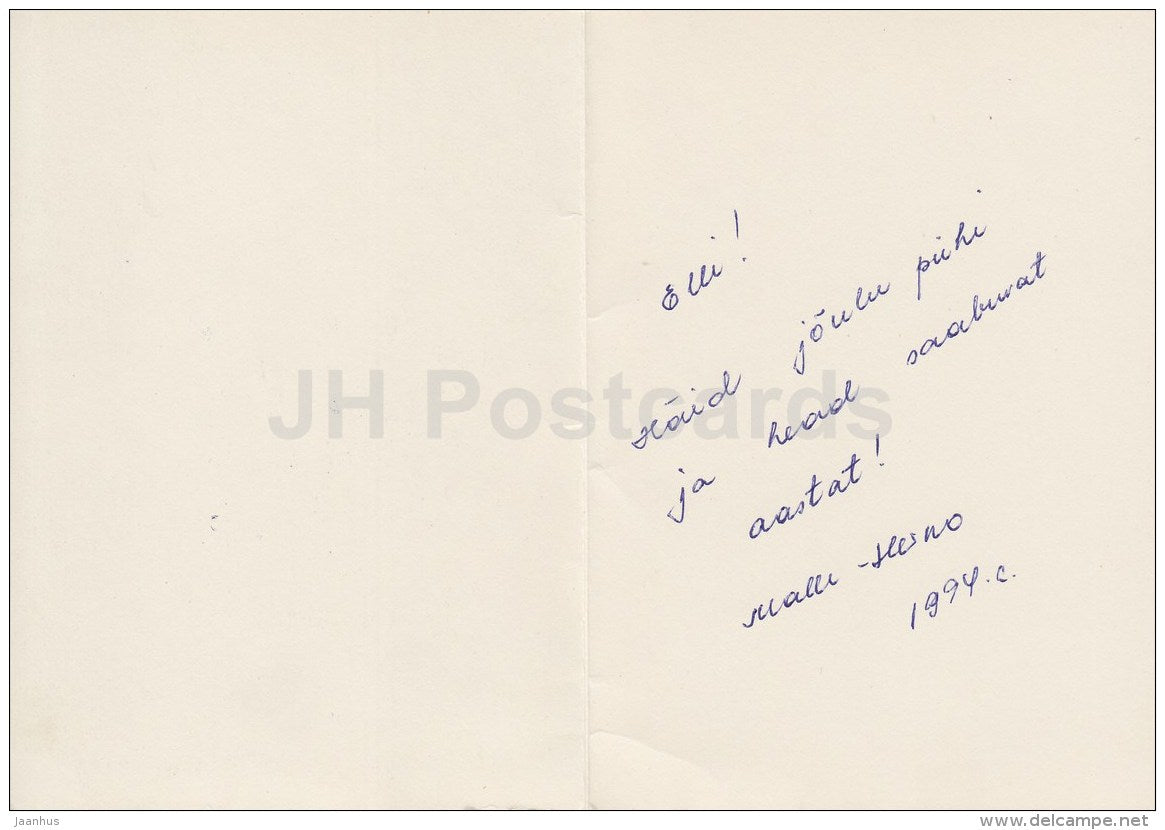 Elli!
Häid jõulu pühi
ja head saabuvat
aastat!
Malle-Heino
1994.a.
JH Postcards
Jaanhus
www.delcampe.net